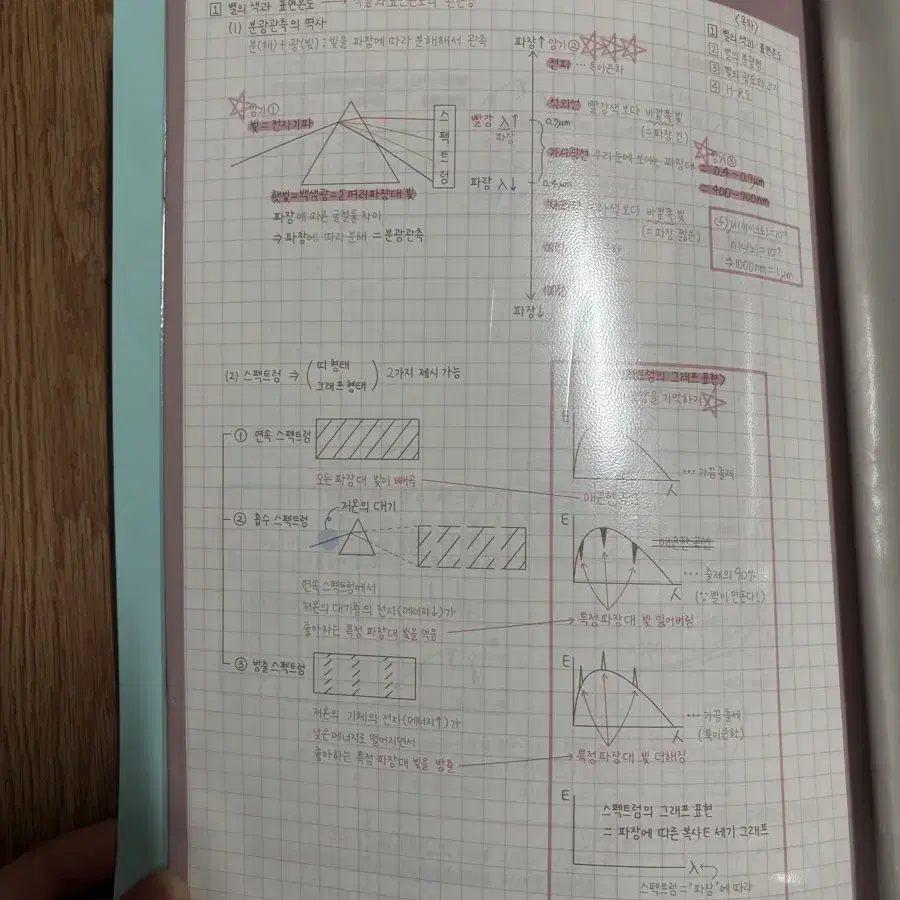 1 별의 색과 표면온도
(1) 분광관측의 역사
분(해)+광(빛) : 빛을 파장에 따라 분해해서 관측
암기①
빛=전자기파
스펙트럼
햇빛=백색광=2 여러파장대 빛
파장에 따른 굴절률 차이
⇒ 파장에 따라 분해 = 분광관측
파장↑ 암기②
전파 … 특이은하
적외선 빨강색보다 바깥쪽 빛
(=파장 긴)
빨강 λ↑
파장
0.7μm
가시광선 우리 눈에 보이는 파장대
암기③
= 0.4~0.7μm
= 400~700nm
파랑 λ↓
0.4μm
보라색보다 바깥쪽 빛
(=파장 짧은)
cf) μ(마이크로)=10?
n(나노)=10?
⇒ 1000nm=1μm
파장↓
<목차>
1 별의 색과 표면온도
2 별의 분광형
3 별의 광도와 크기
4 H-R도
(2) 스펙트럼 ⇒ (띠 형태
그래프 형태) 2가지 제시 가능
① 연속 스펙트럼
모든 파장대 빛이 빼곡
② 흡수 스펙트럼
저온의 대기
연속 스펙트럼에서
저온의 대기층의 전자(에너지↓)가
좋아하는 특정 파장대 빛을 먹음
③ 방출 스펙트럼
저온의 기체의 전자(에너지↑)가
낮은 에너지로 떨어지면서
좋아하는 특정 파장대 빛을 방출
스펙트럼의 그래프 표현>
기억하기
E
λ
… 가끔출제
매끈한
E
λ
매끈한 곡선
… 출제의 90%
(∵ 별이 만든다!)
특정파장대 빛 잃어버림
E
λ
… 가끔출제
(특이은하)
특정파장대 빛 더해짐
E
스펙트럼의 그래프 표현
= 파장에 따른 복사E 세기 그래프
λ
스펙트럼="파장"에 따라